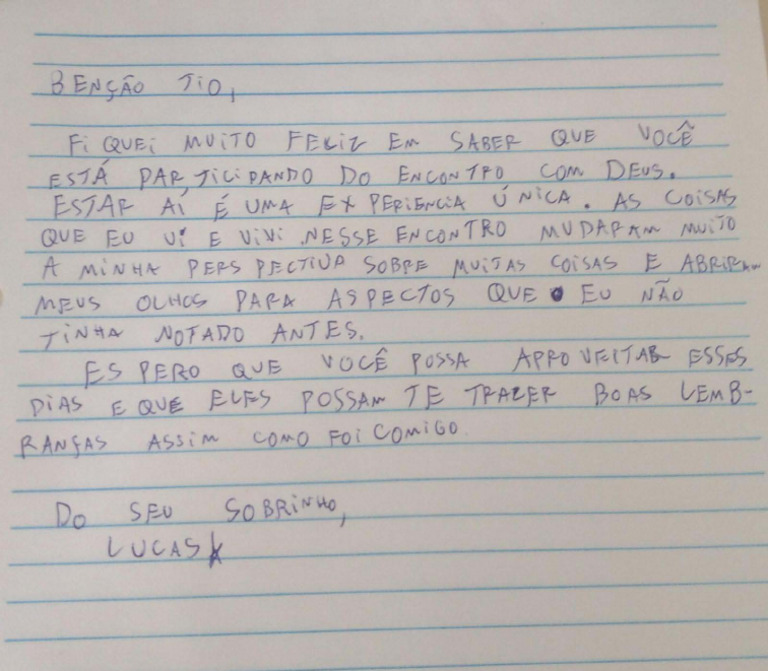 BENÇÃO TIO,
FIQUEI MUITO FELIZ EM SABER QUE VOCÊ
ESTÁ PARTICIPANDO DO ENCONTRO COM DEUS.
ESTAR AÍ É UMA EXPERIENCIA ÚNICA. AS COISAS
QUE EU VI E VIVI NESSE ENCONTRO MUDARAM MUITO
A MINHA PERSPECTIVA SOBRE MUITAS COISAS E ABRIRAM
MEUS OLHOS PARA ASPECTOS QUE EU NÃO
TINHA NOTADO ANTES.
ESPERO QUE VOCÊ POSSA APROVEITAR ESSES
DIAS E QUE ELES POSSAM TE TRAZER BOAS LEMB-
RANÇAS ASSIM COMO FOI COMIGO.
DO SEU SOBRINHO,
LUCAS